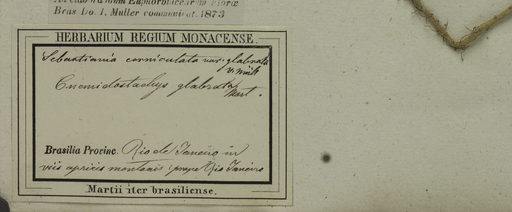 Herbarium Euphorbiacearum Floræ
Bras Do. J. Muller communicat. 1873
HERBARIUM REGIUM MONACENSE.
Sebastiania corniculata var. glabrata
Cnemidostachys glabrata
Mart.
Brasilia Provinc. Rio de Janeiro in
viis apricis montanis prope Rio Janeiro
Martii iter brasiliense.